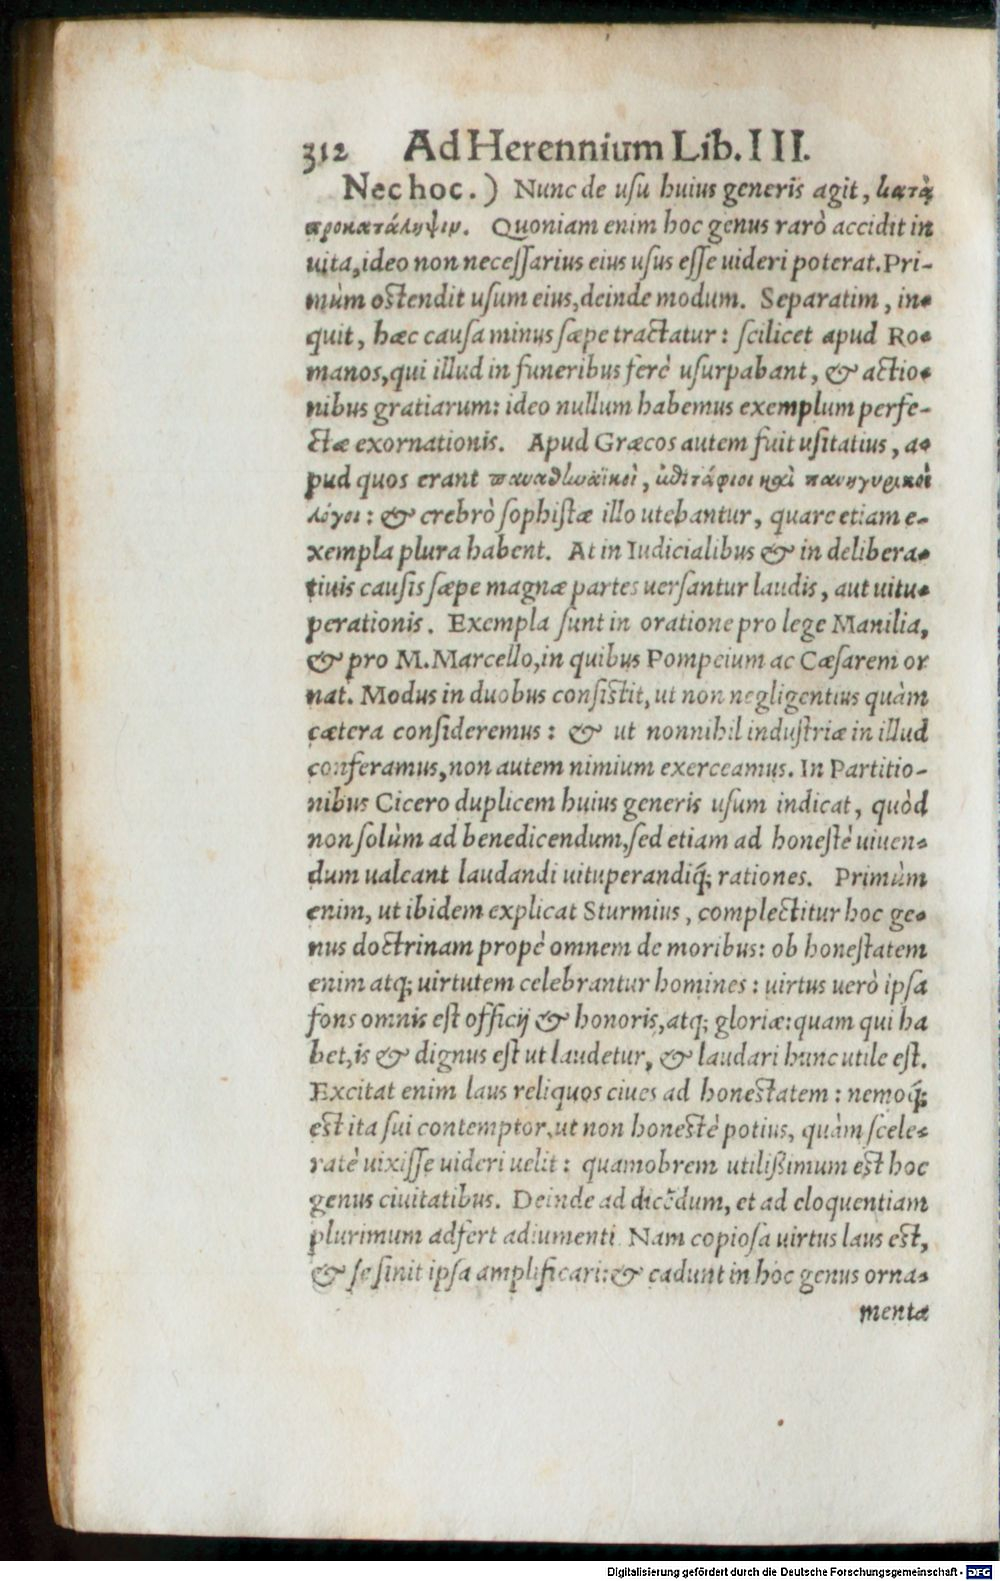 312 Ad Herennium Lib. III.
Nec hoc.) Nunc de usu huius generis agit, κατὰ
προκατάληψιν. Quoniam enim hoc genus rarò accidit in
uita, ideo non neceſſarius eius uſus eſſe uideri poterat. Pri-
mùm oſtendit uſum eius, deinde modum. Separatim, in-
quit, hæc cauſa minus ſæpe tractatur: ſcilicet apud Ro-
manos, qui illud in funeribus ferè uſurpabant, & actio-
nibus gratiarum: ideo nullum habemus exemplum perfe-
ctæ exornationis. Apud Græcos autem fuit uſitatius, a-
pud quos erant παναθηναϊκοὶ, ἐπιτάφιοι καὶ πανηγυρικοὶ
λόγοι: & crebrò ſophiſtæ illo utebantur, quare etiam e-
xempla plura habent. At in Iudicialibus & in delibera-
tiuis cauſis ſæpe magnæ partes uerſantur laudis, aut uitu-
perationis. Exempla ſunt in oratione pro lege Manilia,
& pro M. Marcello, in quibus Pompeium ac Cæſarem or
nat. Modus in duobus conſiſtit, ut non negligentius quàm
cætera conſideremus: & ut nonnihil induſtriæ in illud
conferamus, non autem nimium exerceamus. In Partitio-
nibus Cicero duplicem huius generis uſum indicat, quòd
non ſolùm ad benedicendum, ſed etiam ad honeſtè uiuen-
dum ualeant laudandi uituperandiq́; rationes. Primùm
enim, ut ibidem explicat Sturmius, complectitur hoc ge-
nus doctrinam propè omnem de moribus: ob honeſtatem
enim atq; uirtutem celebrantur homines: uirtus uerò ipſa
fons omnis eſt officij & honoris, atq; gloriæ: quam qui ha
bet, is & dignus eſt ut laudetur, & laudari hunc utile eſt.
Excitat enim laus reliquos ciues ad honeſtatem: nemoq́;
eſt ita ſui contemptor, ut non honeſtè potius, quàm ſcele-
ratè uixiſſe uideri uelit: quamobrem utilißimum eſt hoc
genus ciuitatibus. Deinde ad dicēdum, et ad eloquentiam
plurimum adfert adiumenti. Nam copioſa uirtus laus eſt,
& ſe ſinit ipſa amplificari: & cadunt in hoc genus orna-
menta
Digitalisierung gefördert durch die Deutsche Forschungsgemeinschaft - DFG